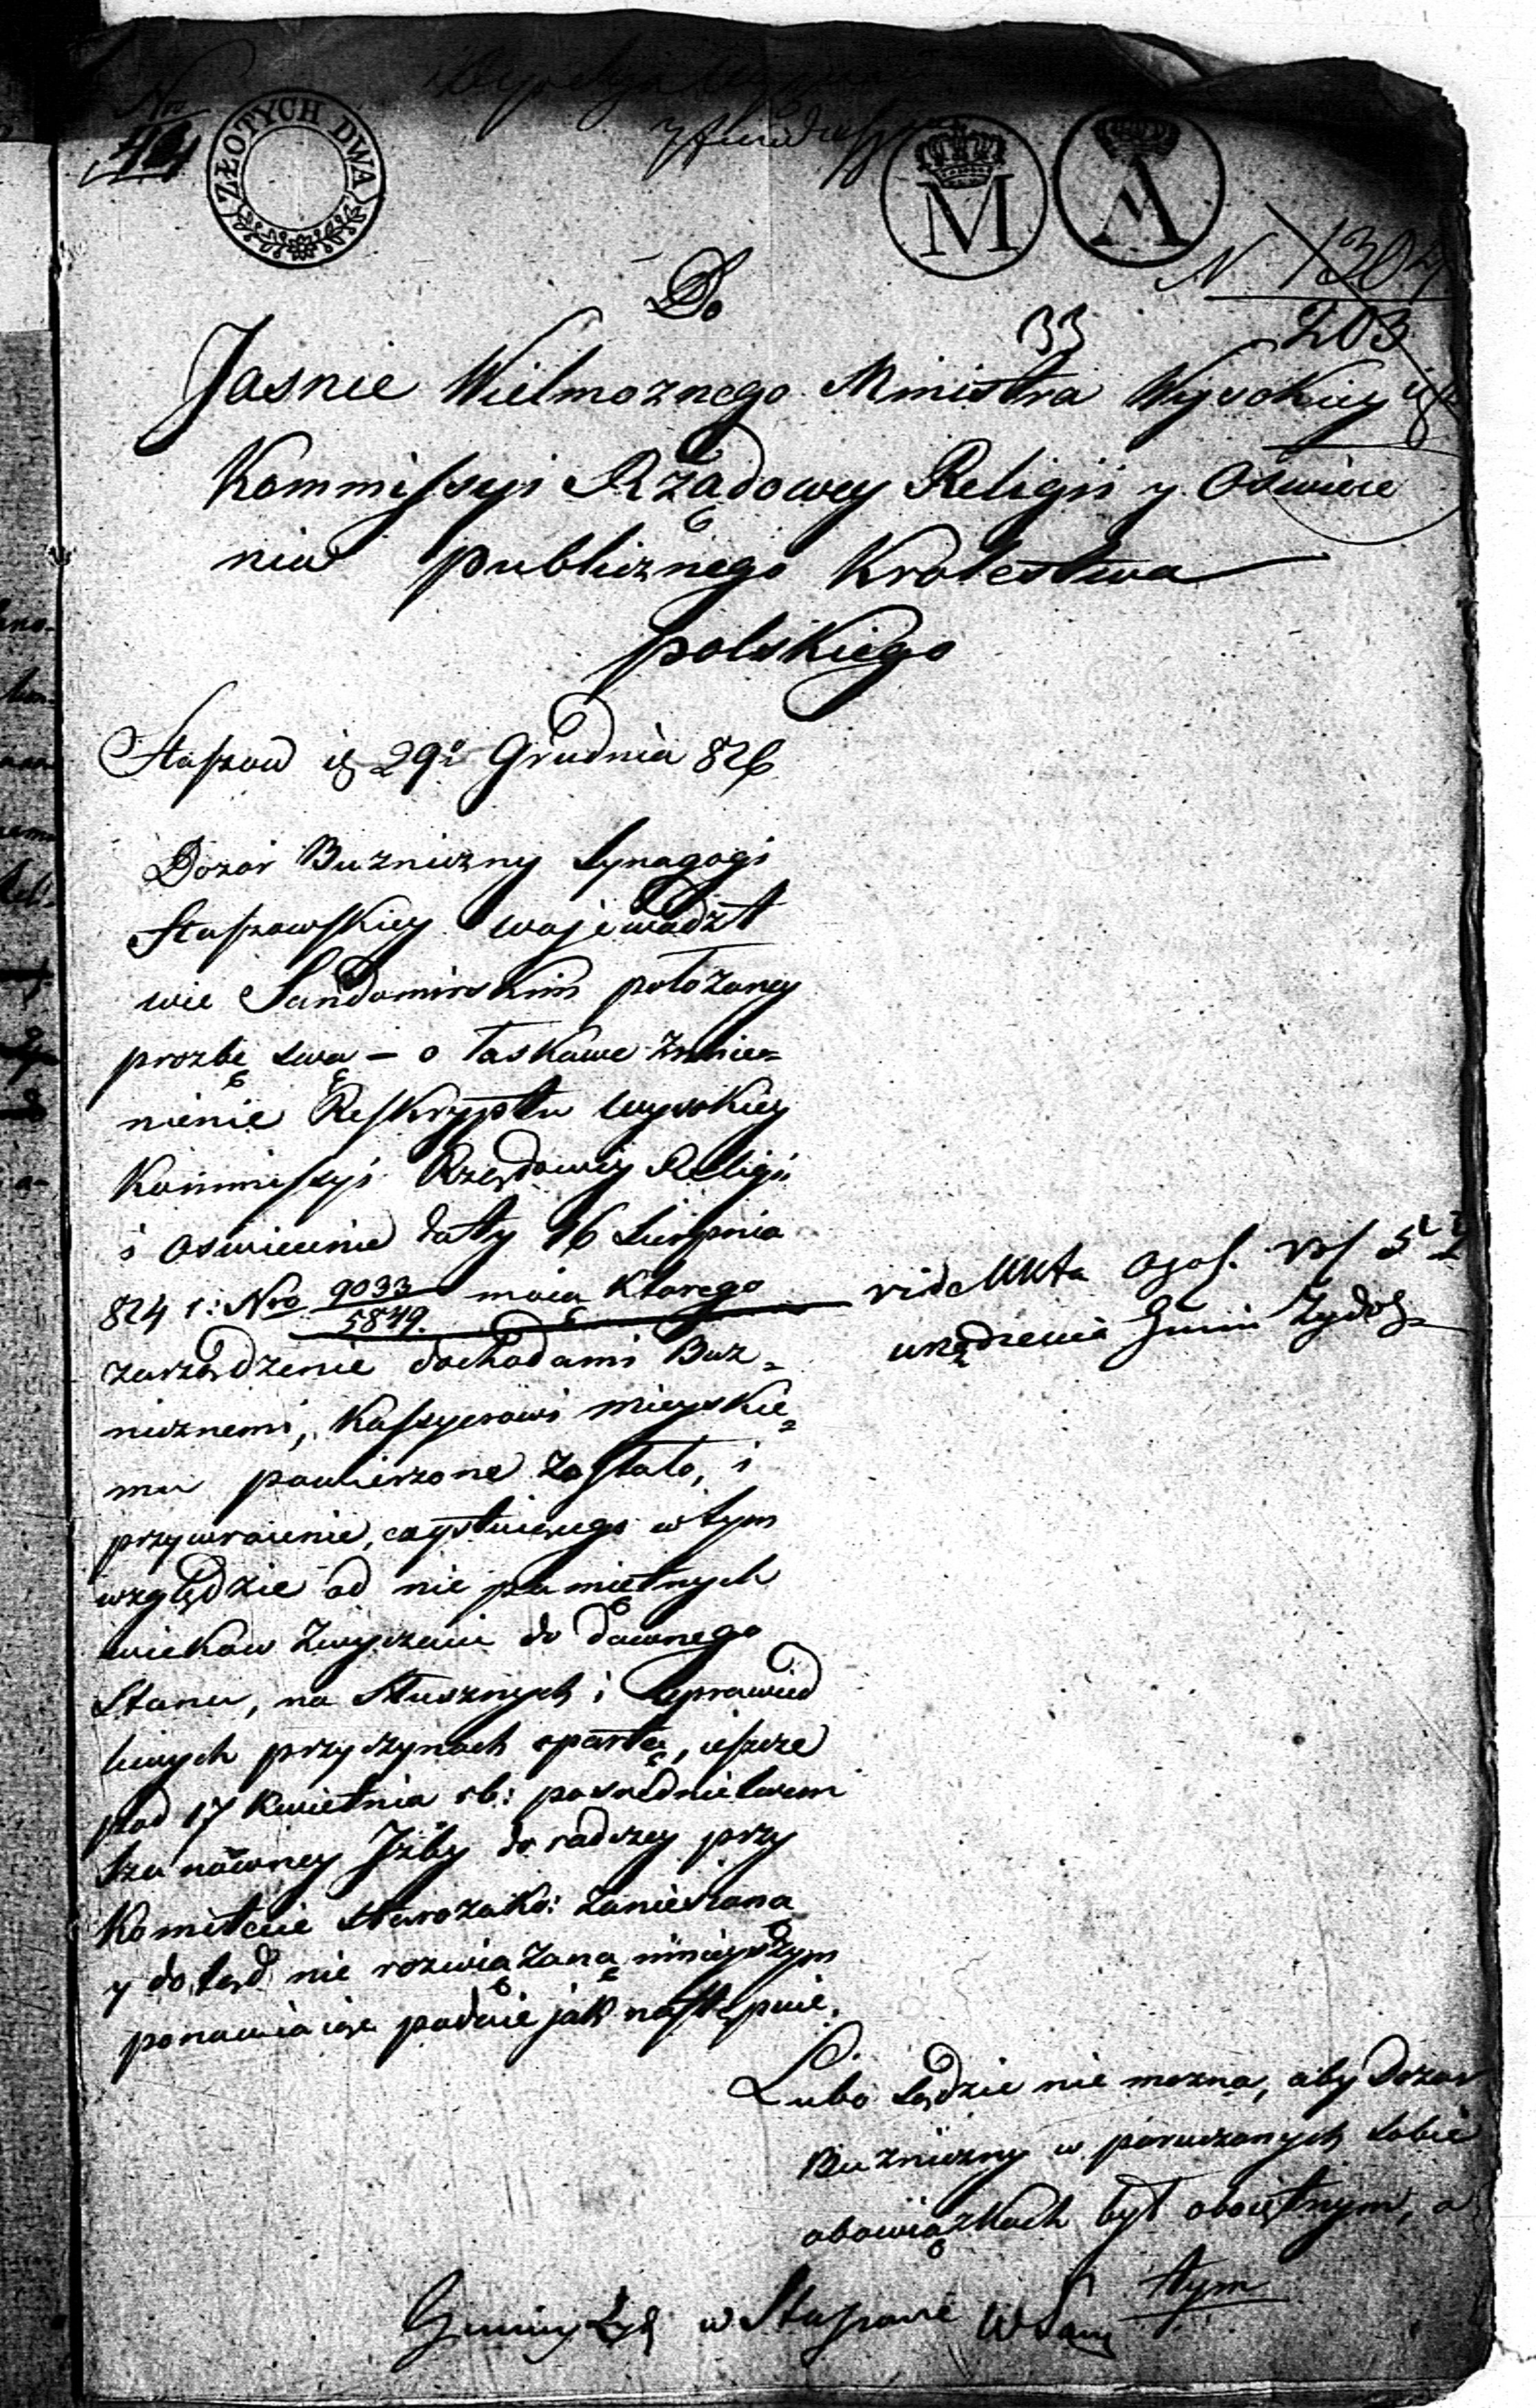 Nro
ZŁOTYCH DWA
M
A
N 1304
203
33
Do
Jasnie Wielmoznego Ministra Wysokiey
Kommissyi Rządowey Religii y Oswiece
nia publicznego Krolestwa
polskiego
Staszow d 29º Grudnia 826
Dozor Buzniczny Synagogi
Staszowskiey wojewodzt
wie Sandomirskim położoney
prozbę swą – o łaskawe zmie=
nienie Reskryptu wysokiey
Kommissyi Rządowey Religii
i Oswiecenia daty 16 Sierpnia
824 r: Nro 9033/5849. mocą ktorego
zarządzenie dochodami Buz=
nicznemi, Kassyerowi mieyskie=
mu powierzone zostało, i
przywrocenie, exystuiącego w tym
względzie od nie pamiętnych
wiekow zwyczaiu do dawnego
Stanu, na Słusznych i Sprawied
liwych przyczynach opartą, ieszcze
pod 17 Kwietnia rb: posrednictwem
Szanowney Jzby doradczey przy
Komitecie Starozako: zaniesioną
y do tąd nie rozwiązaną ninieyszym
ponawiaiąc podaie jak następuie.
vide Akta ogol.
urządzenia Gmin Zydo
Lubo sądzic nie mozna, aby Dozor
Buzniczny w poruczonych sobie
obowiązkach był oboiętnym, a
tym
Gminy Zyd w Staszowie